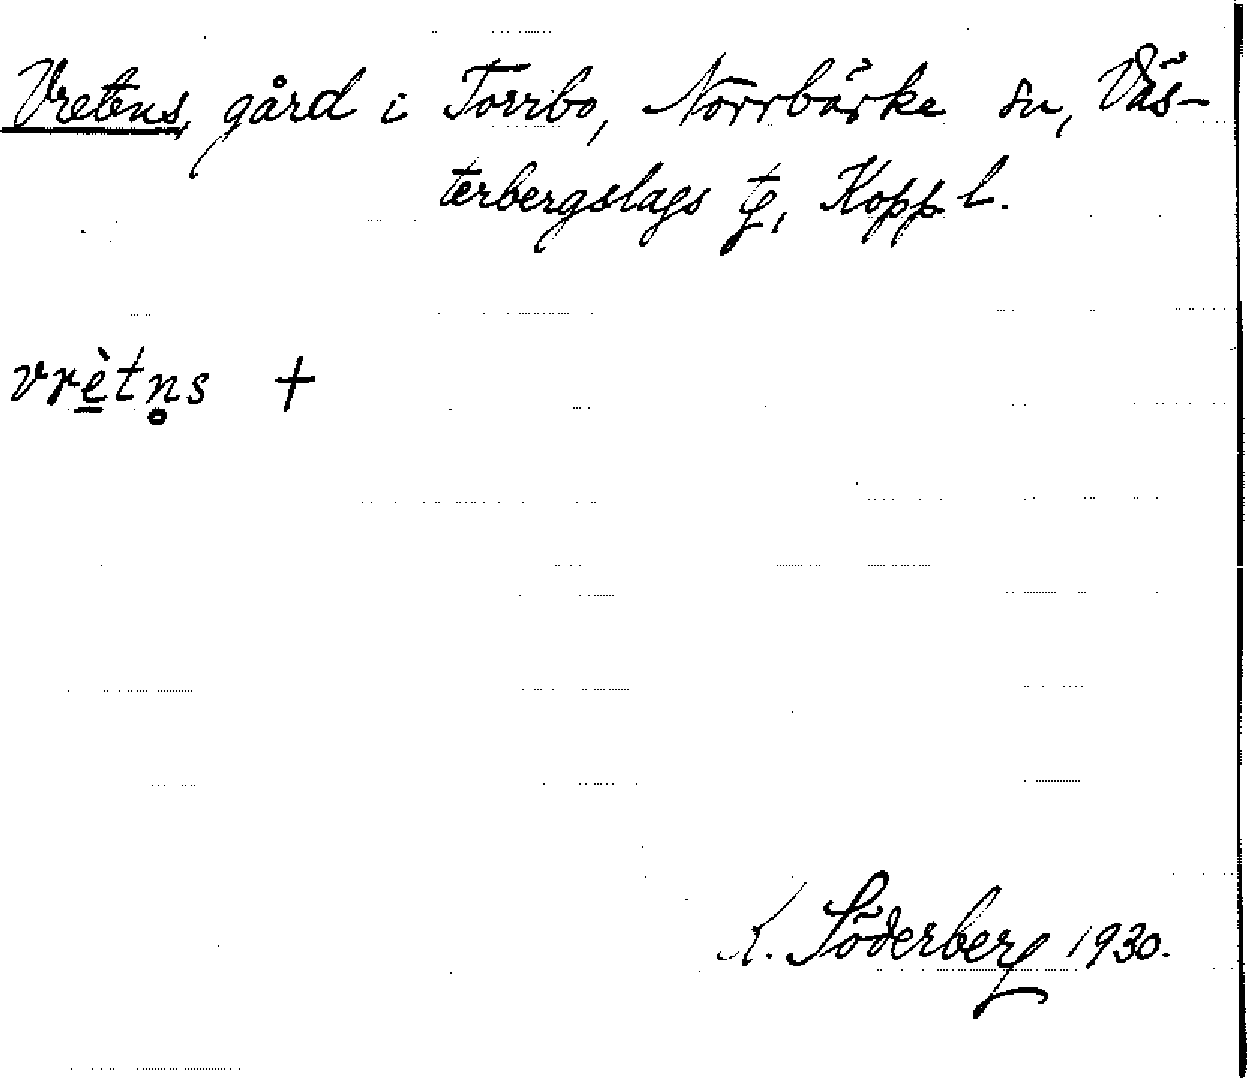 Vretens, gård i Torrbo, Norrbärke sn, Väs-
terbergslags tg, Kopp. l.
vrè̱tn̥s +
K. Söderberg 1930.